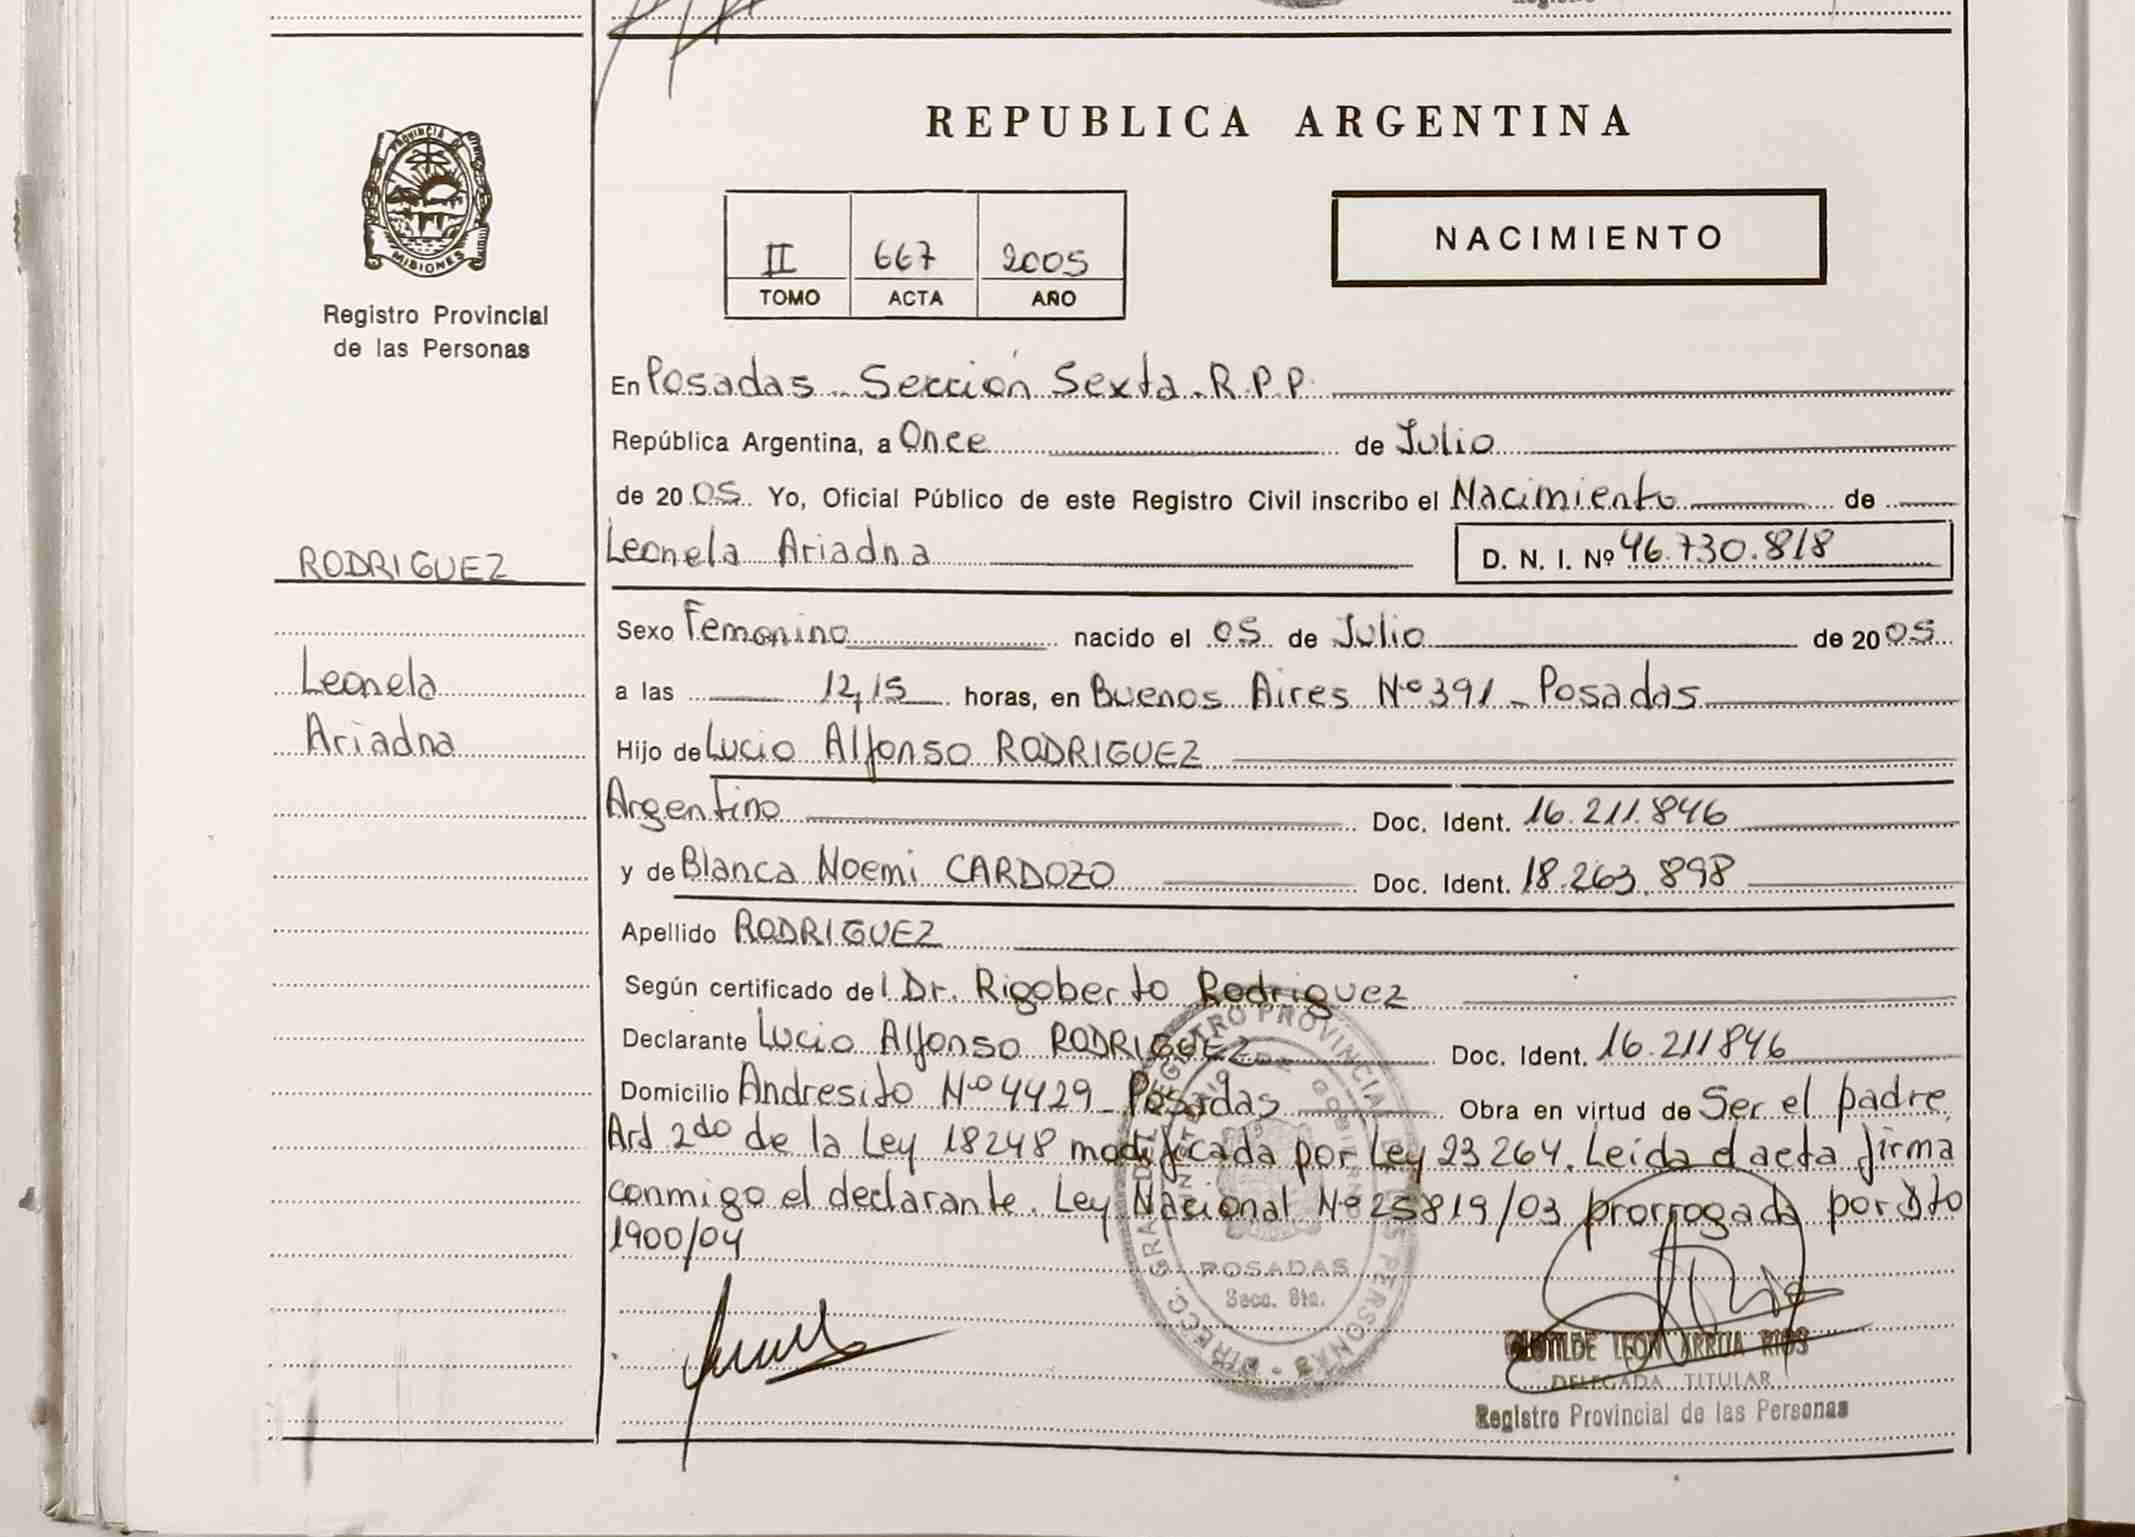 Registro
PROVINCIA DE
MISIONES
Registro Provincial
de las Personas
REPUBLICA ARGENTINA
II 667 2005
TOMO ACTA AÑO
NACIMIENTO
En Posadas - Sección Sexta. R.P.P.
República Argentina, a Once de Julio
de 2005. Yo, Oficial Público de este Registro Civil inscribo el Nacimiento de
RODRIGUEZ
Leonela Ariadna D. N. I. Nº 46.730.818
Sexo Femenino nacido el 05 de Julio de 2005
Leonela
a las 12,15 horas, en Buenos Aires Nº 391 - Posadas
Ariadna
Hijo de Lucio Alfonso RODRIGUEZ
Argentino Doc. Ident. 16.211.846
y de Blanca Noemi CARDOZO Doc. Ident. 18.263.898
Apellido RODRIGUEZ
Según certificado del Dr. Rigoberto Rodriguez
Declarante Lucio Alfonso RODRIGUEZ Doc. Ident. 16.211846
Domicilio Andresito Nº 4429 - Posadas Obra en virtud de Ser el padre.
Art 2do de la Ley 18248 modificada por Ley 23264. Leída el acta firma
conmigo el declarante. Ley Nacional Nº 25819/03 prorrogada por Dto
1900/04
DIRECC. GRAL. DEL REGISTRO PROVINCIAL DE LAS PERSONAS
MINISTERIO DE GOBIERNO
POSADAS
Secc. 6ta.
CLOTILDE LEON ARRUA RIOS
DELEGADA TITULAR
Registro Provincial de las Personas